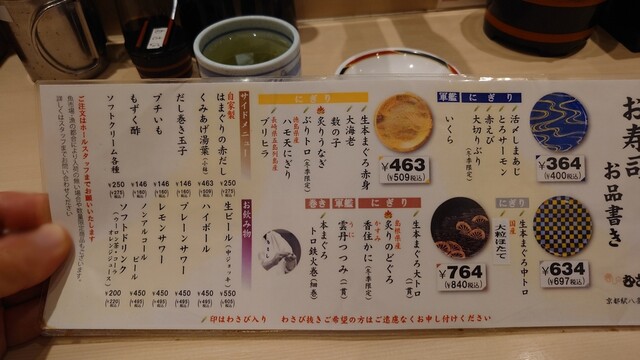 お寿司
お品書き
軍艦
にぎり
活〆しまあじ
とろサーモン
赤えび
大切りぶり
(冬季限定)
いくら
¥364
(¥400税込)
にぎり
生本まぐろ赤身
大海老
数の子
炙りうなぎ
ぶりトロ
(冬季限定)
徳島県産
ハモ天にぎり
長崎県五島列島産
ブリヒラ
¥463
(¥509税込)
にぎり
生本まぐろ中トロ
国産
大粒ほたて
¥634
(¥697税込)
巻き
軍艦
にぎり
生本まぐろ大トロ
(一貫)
島根県産
炙りのどぐろ
香住かに
(冬季限定)
うに
雲丹つつみ
(一貫)
本まぐろ
トロ鉄火巻
(細巻)
¥764
(¥840税込)
サイドメニュー
自家製
はまぐりの赤だし
¥250
くみあげ湯葉(小鉢)
¥463
だし巻き玉子
¥146
プチいも
¥146
もずく酢
¥146
ソフトクリーム各種
¥250
お飲み物
生ビール
¥550
ハイボール
¥450
プレーンサワー
¥450
レモンサワー
¥450
ノンアルコール
ビール
¥450
ソフトドリンク
(ウーロン茶・コーラ
オレンジジュース)
¥200
ご注文はホールスタッフまでお願いいたします
詳しくはスタッフまでお問い合わせください
印はわさび入り わさび抜きご希望の方はご遠慮なくお申し付けください